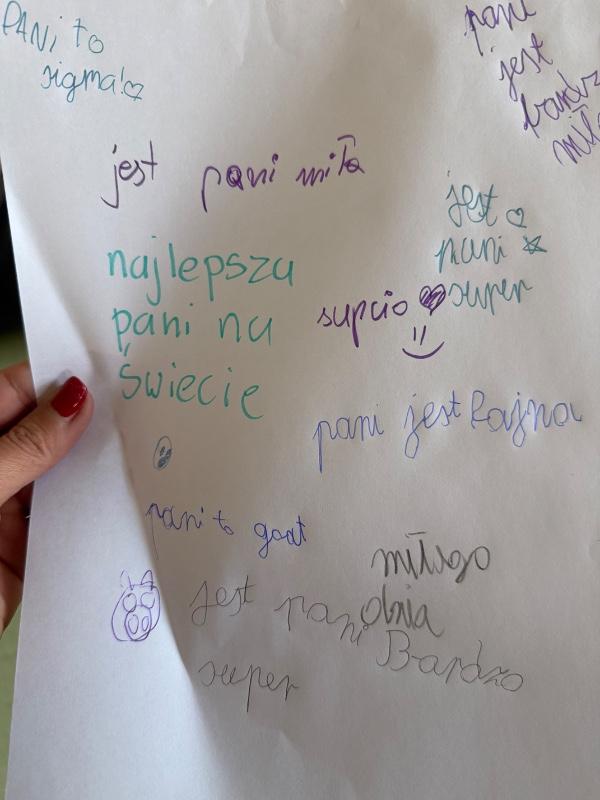 PANi to
sigma!♡
pani
jest
bardz
miła
jest pani miła
jest ♡
pani ☆
super
najlepsza
pani na
świecie
supcio ♥
pani jest fajna
pani to goat
miłego
dnia
jest pani Bardzo
super